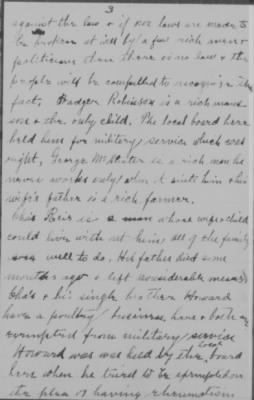 3
against the law & if our laws are made to
be broken at will by a few rich men &
politicians then there is no law & the
people will be compelled to recognize the
fact, Badger Robinson is a rich mans
son & the only child. The local board here
held him for military service which was
right, George McWhiter is a rich man he
never works only when it suits him & his
wife's father is a rich farmer.
Chas Paris is a man whose wife & child
could live with out him, all of the family
are well to do. His father died some
months ago & left considerable means,
Chas & his single brother Howard
have a poultry business here & both are
exempted from military service
Howard was was held by the local board
here when he tried to be exempted on
the plea of having rheumatism